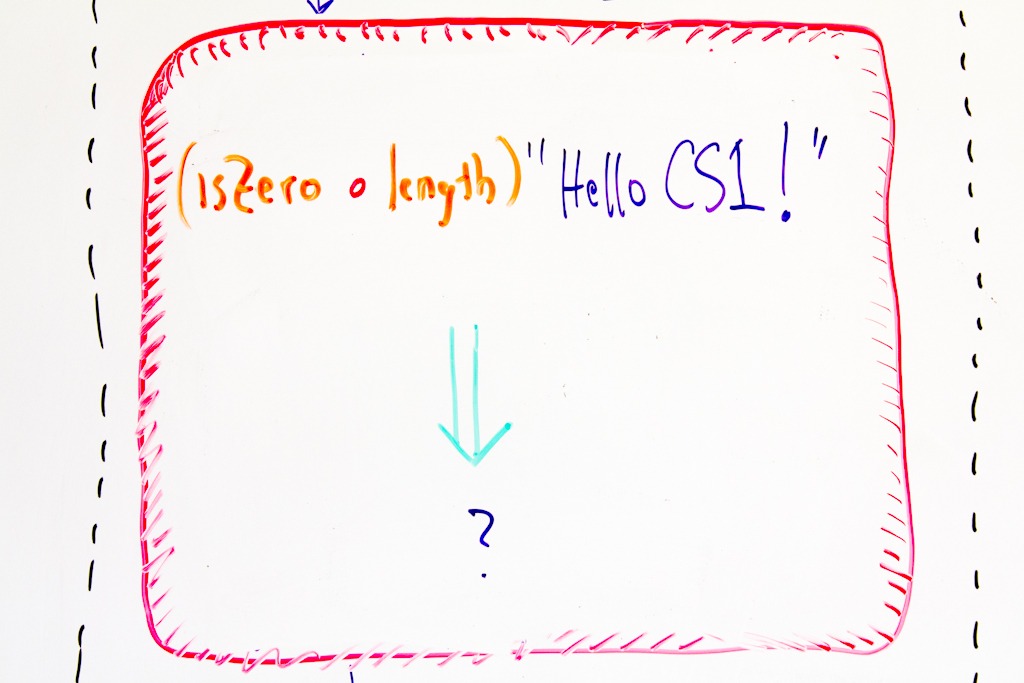 (isZero o length) "Hello CS1!"
?